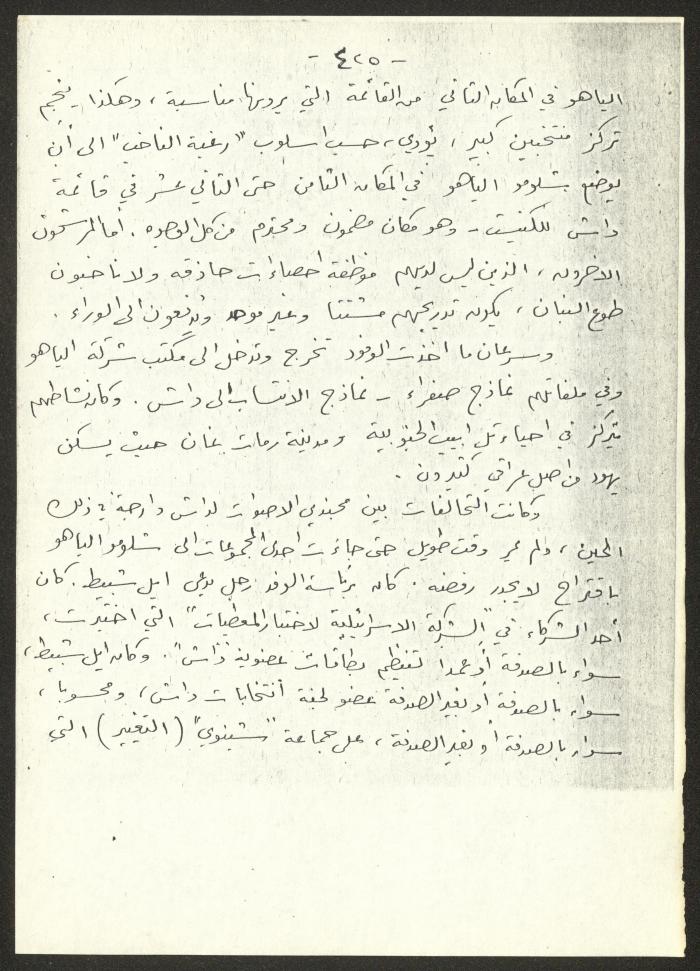 - ٤٢٥ -
الياهو في المكان الثاني من القائمة التي يرونها مناسبة، وهكذا ينجم
تركز منتخبين كبير، يؤدي، حسب اسلوب "رغبة الناخب" الى أن
يوضع شلومو الياهو في المكان الثامن حتى الثاني عشر في قائمة
داش للكنيست - وهو مكان مضمون ومحترم من كل الوجوه. أما المرشحون
الاخرون، الذين ليس لديهم موظفة احصاءات حاذقه ولا ناخبون
طوع البنان، يكون تدريجهم مشتتا وغير موحد ويدفعون الى الوراء.
وسرعان ما اخذت الوفود تخرج وتدخل الى مكتب شركة الياهو
وفي ملفاتهم نماذج صفراء - نماذج الانتساب الى داش. وكان نشاطهم
يتركز في احياء تل ابيب الجنوبية ومدينة رمات غان حيث يسكن
يهود من اصل عراقي كثيرون.
وكانت التحالفات بين مجندي الاصوات لداش دارجة في ذلك
الحين، ولم يمر وقت طويل حتى جاءت احدى المجموعات الى شلومو الياهو
باقتراح لا يجدر رفضه. كان برئاسة الوفد رجل يدعى ايل شبيط. كان
أحد الشركاء في "الشركة الاسرائيلية لاختبار المعطيات" التي اختيرت،
سواء بالصدفة أو عمدا لتنظيم بطاقات عضوية "داش". وكان ايل شبيط،
سواء بالصدفة أو بغير الصدفة عضو لجنة انتخابات داش، ومحسوبا،
سواء بالصدفة أو بغير الصدفة، على جماعة "شينوي" (التغيير) التي